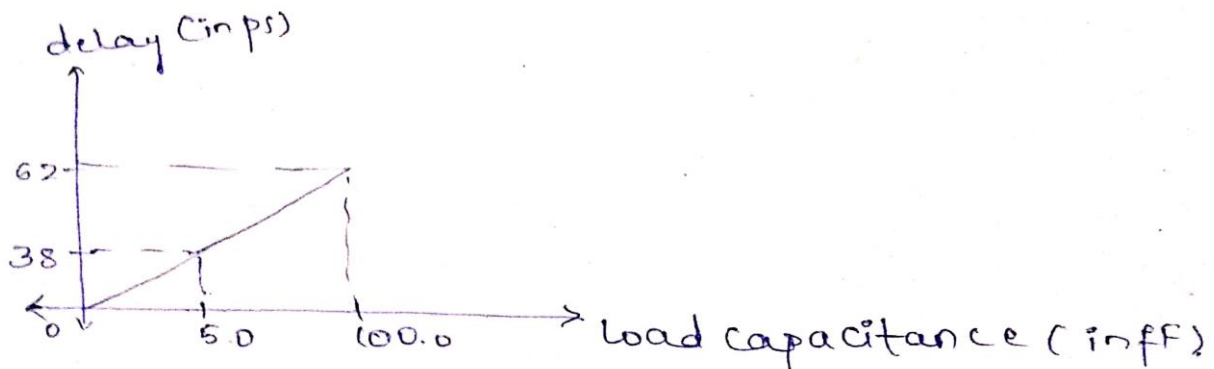 delay (in ps)
62
38
0
5.0
100.0
load capacitance (in fF)